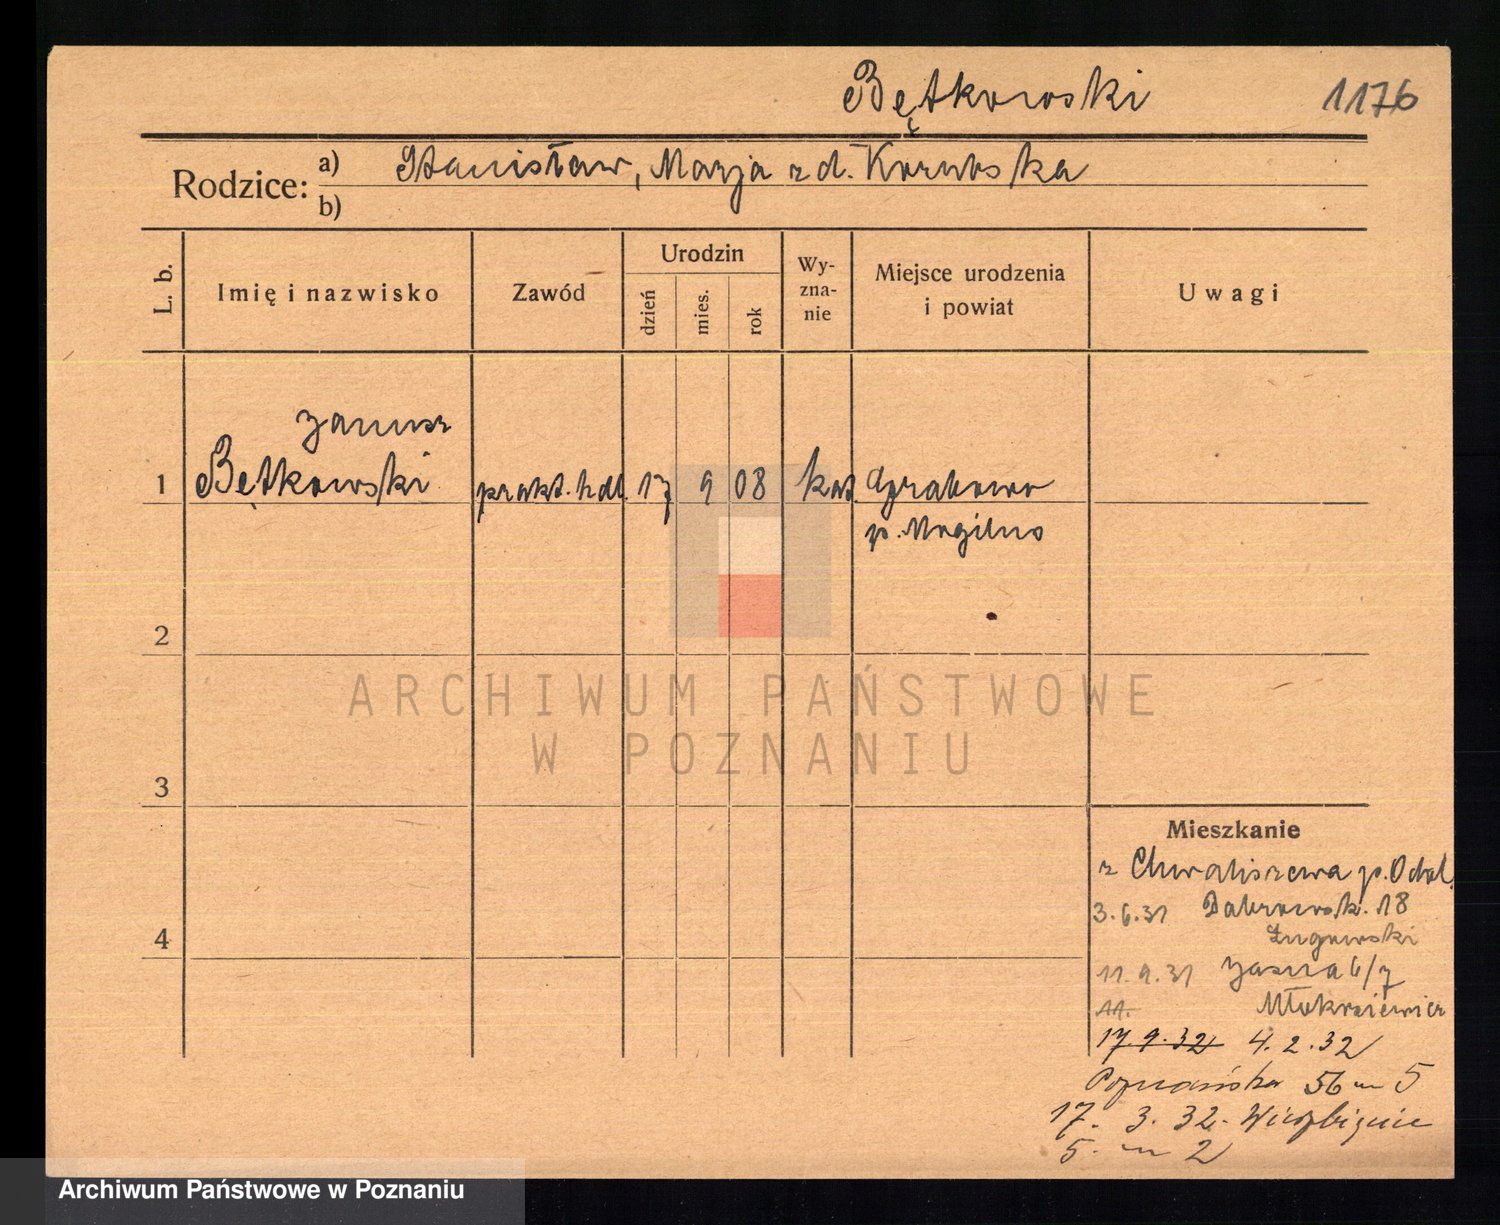 Bętkowski 1176
Rodzice: a) Stanisław, Marja z d.
b)
L. b.
Imię i nazwisko
Zawód
Urodzin
dzień
mies.
rok
Wy-
zna-
nie
Miejsce urodzenia
i powiat
Uwagi
Janusz
1 Bętkowski prakt. hdl. 17 9 08 kat. Grabowo
p. Mogilno
2
ARCHIWUM PAŃSTWOWE
W POZNANIU
3
Mieszkanie
z Chwaliszewa p. Odol.
3.6.31 Dąbrowsk. 18
4
11.9.31 Jasna 6/7
11.
17.9.32 4.2.32
Poznańska 56 m 5
17. 3. 32. Wierzbięcice
5. m 2
Archiwum Państwowe w Poznaniu